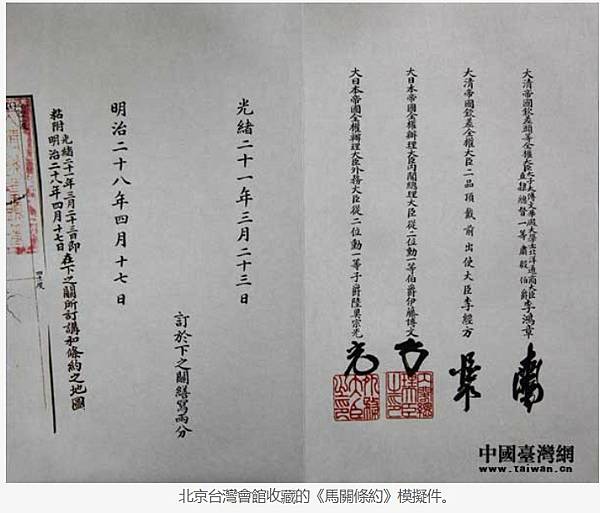 大清帝國欽差頭等全權大臣太子太傅文華殿大學士北洋通商大臣直隸總督一等肅毅伯爵李鴻章
大清帝國欽差全權大臣二品頂戴前出使大臣李經方
大日本帝國全權辦理大臣內閣總理大臣從二位勳一等伯爵伊藤博文
大日本帝國全權辦理大臣外務大臣從二位勳一等子爵陸奧宗光
訂於下之關繕寫兩分
光緒二十一年三月二十三日
明治二十八年四月十七日
光緒二十一年三月二十三日即
明治二十八年四月十七日
粘附
在下之關所訂講和條約之地圖
中國臺灣網
www.taiwan.cn
北京台灣會館收藏的《馬關條約》模擬件。